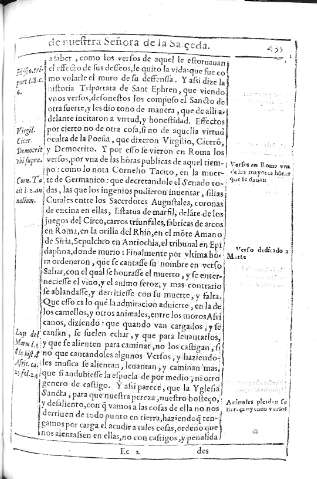 de nuestra Señora de la Sa ceda.
a saber, como los versos de aquel le estoruauan
el effecto de sus desseos, le quito la vida: que fue co
mo volarle el muro de su deffensa. Y assi dize la
historia Tripartita de Sant Ephren, que viendo
vnos versos, deshonestos los compuso el Sancto de
otra suerte, y les dio tono de manera, que de alli a
delante incitaron a virtud, y honestidad. Effectos
por cierto no de otra cosa, si no de aquella virtud
oculta de la Poesia, que dixeron Virgilio, Cicerõ,
y Democrito. Y por esso se vieron en Roma los
versos, por vna de las honras publicas de aquel tiem-
po: como lo nota Cornelio Tacito, en la muer-
te de Germanico: que decretandole el Senado to-
das, las que los ingenios pudieron inuentar, sillas
Curules entre los Sacerdotes Augustales, coronas
de encina en ellas, Estatua de marfil, delãte de los
juegos del Circo, carros triunfales, fabricas de arcos
en Roma, en la orilla del Rhin, en el mõte Amano
de Siria, Sepulchro en Antiochia, el tribunal en Epi
daphna, donde murio: Finalmente por vltima hõ
ra ordenaron, que se cantasse su nombre en verso
Saliar, con el qual se honrasse el muerto, y se enter-
neciesse el viuo, y el animo feroz, y mas contrario
se ablandasse, y derritiesse con su muerte, y falta.
Que esso es lo que la admiracion aduierte, en la de
los camellos, y otros animales, entre los moros Afri
canos, diziendo: que quando van cargados, y se
cansan, se suelen echar, y que para leuantarlos,
y que se alienten para caminar, no los castigan, si
no que cantandoles algunos Versos, y haziendo-
les musica se alientan, leuantan, y caminan mas,
que si anduuiesse la espuela de por medio, ni otro
genero de castigo. Y assi parece, que la Yglesia
Sancta, para que nuestra pereza, nuestro hosteço,
y desaliento, con q vamos a las cosas de ella no nos
derriuen de todo punto en tierra, haziendo q ten-
gamos por carga el acudir a cales cosas, ordeno que
nos alentassen en ellas, no con castigos, y penalida
Ee 2. des
Virgil.
Cicer.
Democrit
vbi supra.
Versos en Roma vna
de las mayores hõras
que se dauan
Verso dedicado a
Marte